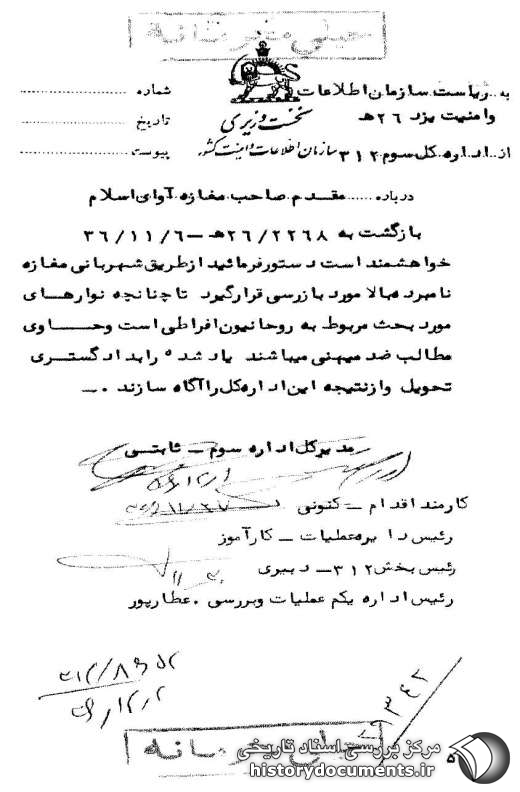 خیلی محرمانه
به ..ریاست سازمان اطلاعات
وامنیت یزد ۲۶ﻫ
از اداره کل سوم ۳۱۲
نخست وزیری
سازمان اطلاعات و امنیت کشور
شماره
تاریخ
پیوست
درباره ...... مقدم صاحب مغازه آوای اسلام
بازگشت به ۲۲۶۸/۲۶ﻫ -۳۶/۱۱/۶
خواهشمند است دستور فرمائید از طریق شهربانی مغازه
نامبرده بالا مورد بازرسی قرار گیرد تا چنانچه نوارهای
مورد بحث مربوط به روحانیون افراطی است وحاوی
مطالب ضد میهنی میباشند یاد شده را بدادگستری
تحویل وازنتیجه این اداره کل را آگاه سازند . -
مدیرکل اداره سوم - ثابتی
کارمند اقدام - کنونی
رئیس دایره عملیات - کارآموز
رئیس بخش ۳۱۲- دبیری
رئیس اداره یکم عملیات وبررسی . عطارپور
خیلی محرمانه
مرکز بررسی اسناد تاریخی
historydocuments.ir